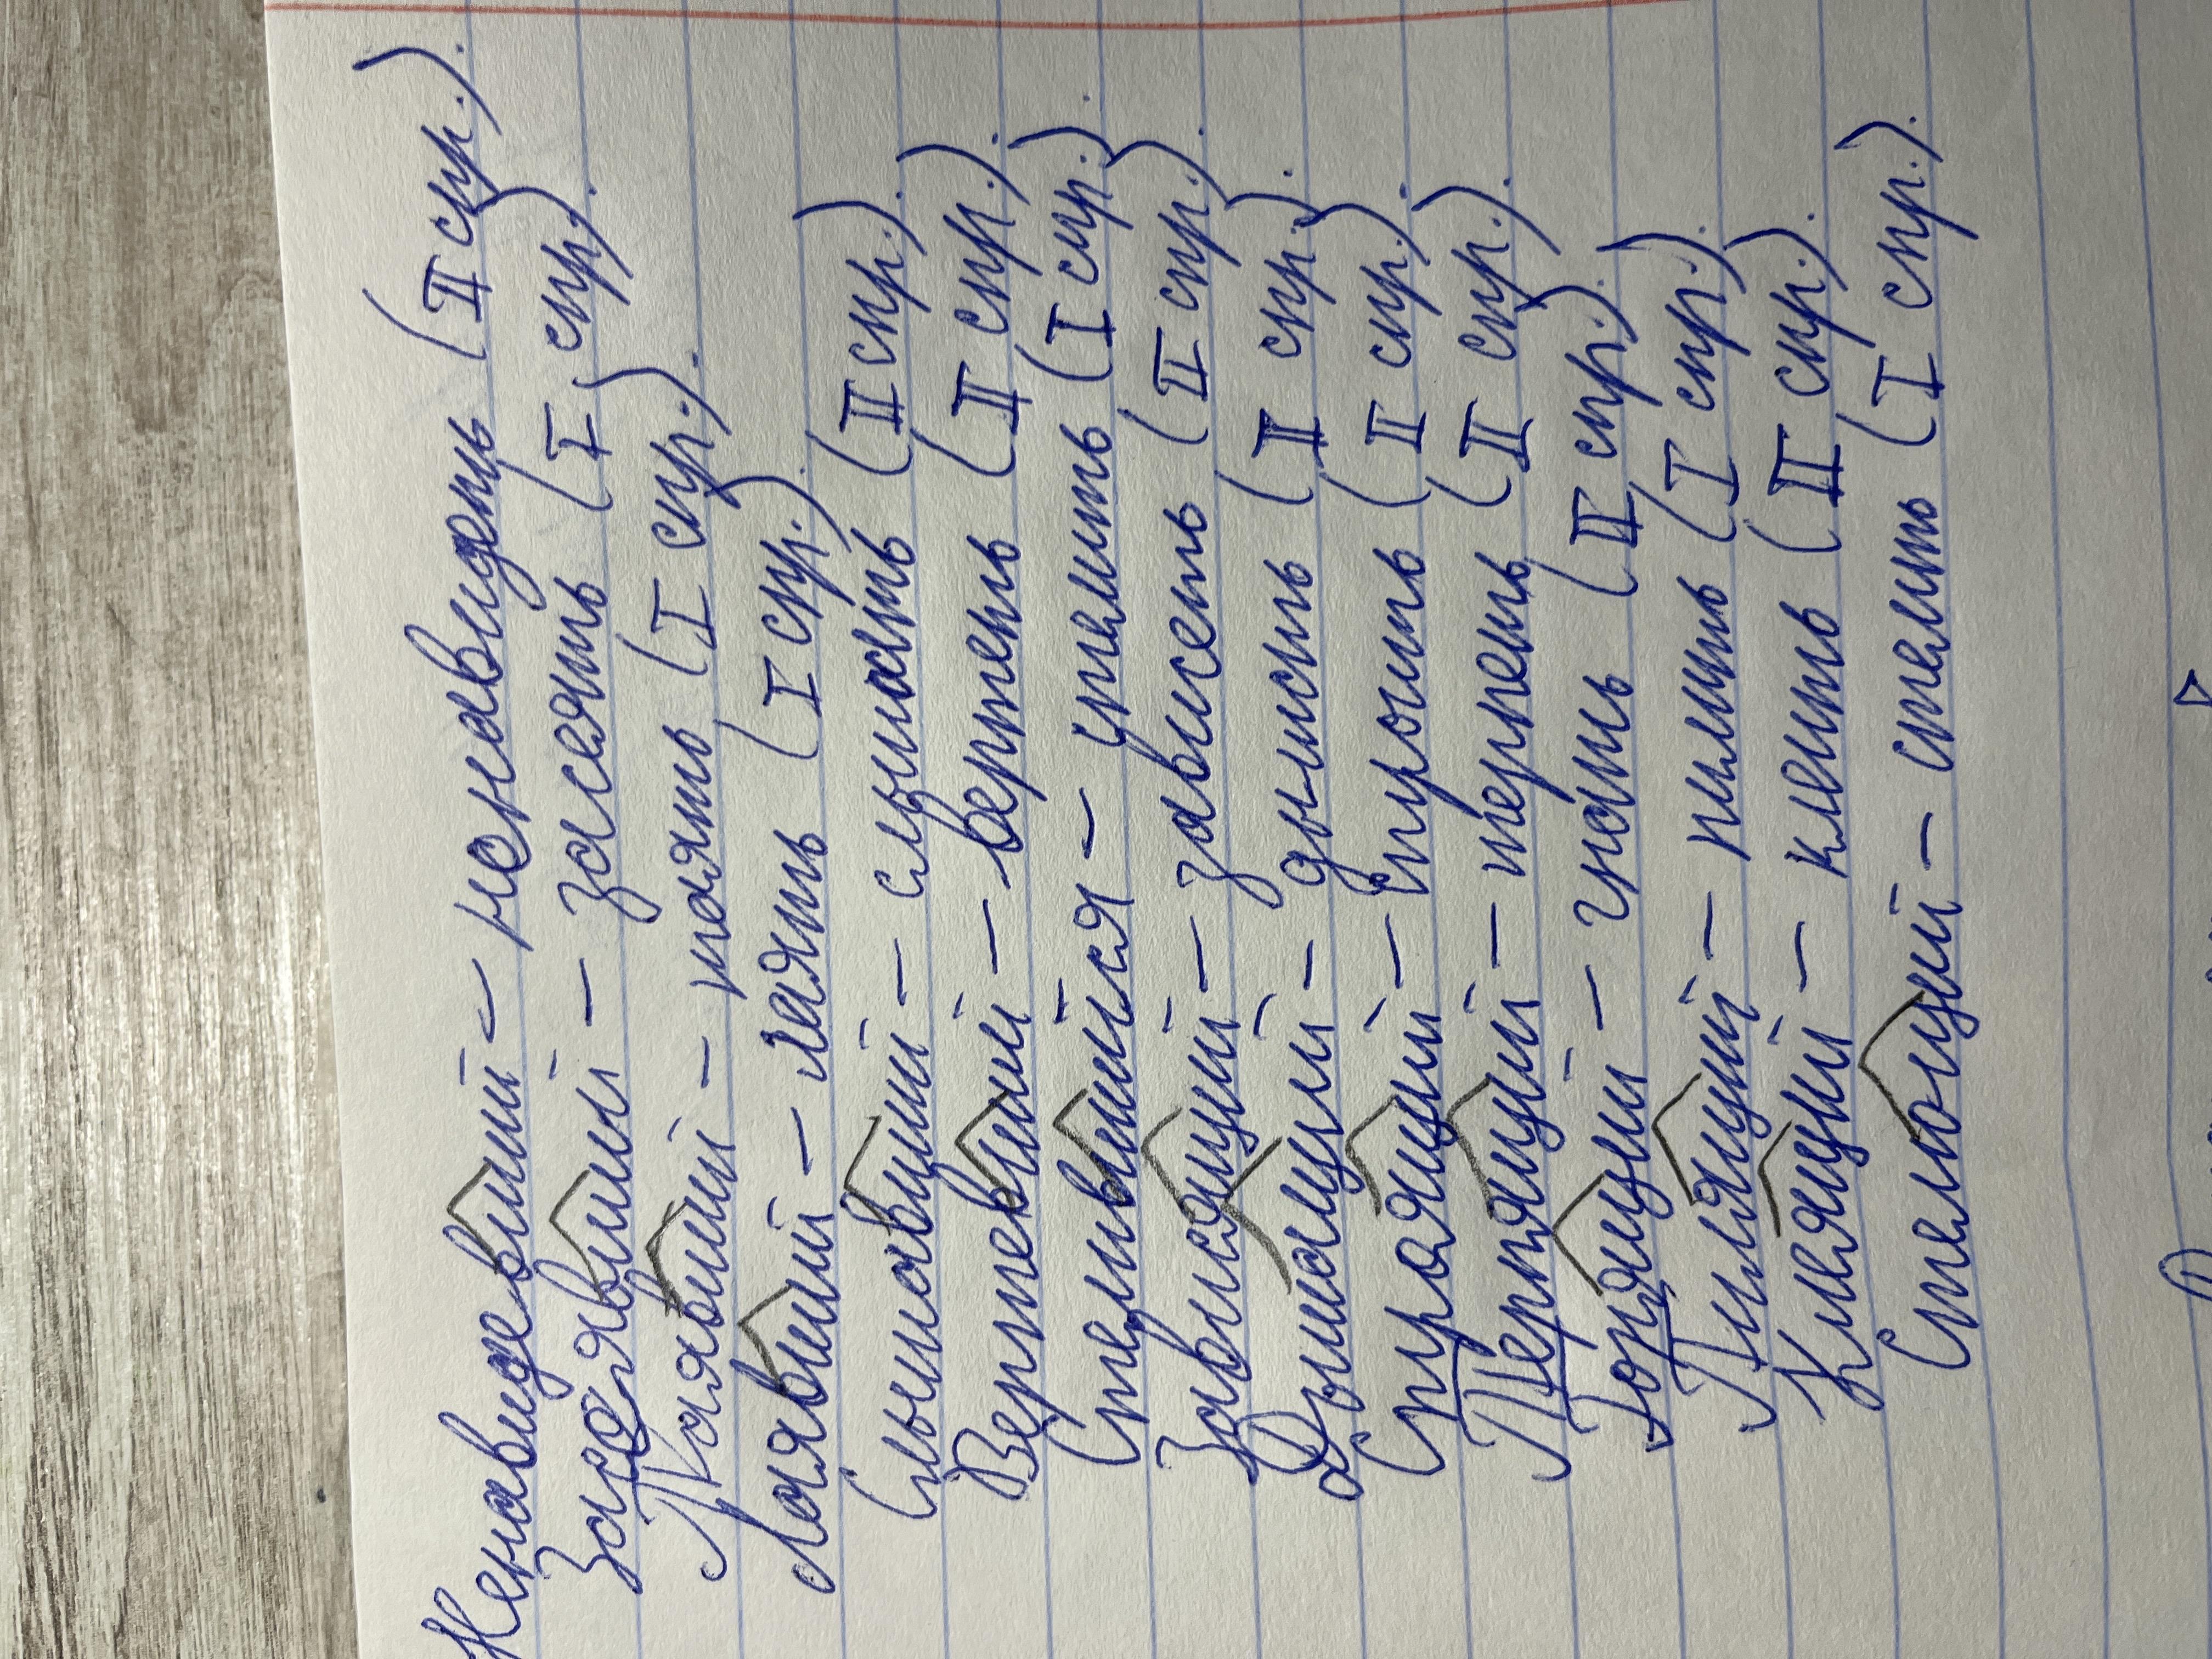 Ненавидевший – ненавидеть (II спр.).
Засеявший – засеять (I спр).
Таявший – таять (I спр.).
Лаявший – лаять (I спр.).
Слышавший – слышать (II спр.).
Вертевший – вертеть (II спр.).
Стелившийся – стелить (I спр.).
Зависящий – зависеть (II спр.).
Дышащий – дышать (II спр.).
Строящий – строить (II спр.).
Терпящий – терпеть (II спр.).
Гонящий – гнать (II спр.).
Пилящий – пилить (I спр.).
Клеящий – клеить (II спр.).
Стелющий – стелить (I спр.).